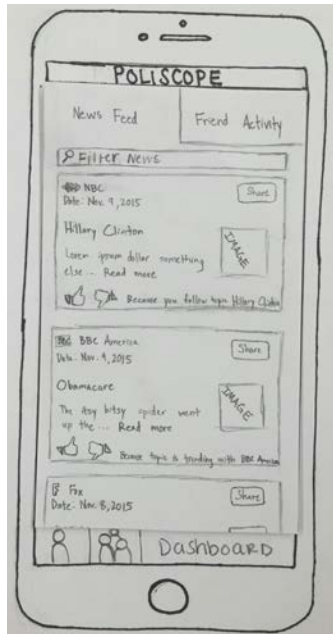 POLISCOPE
News Feed
Friend Activity
Filter News
NBC
Share
Date: Nov. 9, 2015
Hillary Clinton
IMAGE
Lorem ipsum dollar something
else... Read more
Because you follow topic Hillary Clinton
BBC America
Share
Date: Nov. 9, 2015
Obamacare
IMAGE
The itsy bitsy spider went
up the ... Read more
Because topic is trending with BBC America
Fox
Share
Date: Nov. 8, 2015
DashboARD